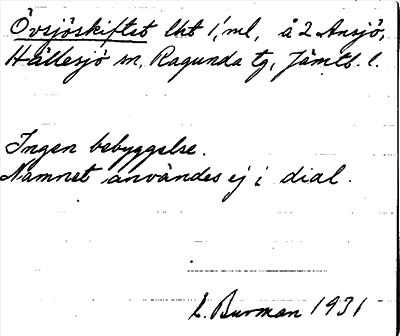 Övsjöskiftet lht 1/1 ml, å 2 Ansjö,
Hällesjö sn, Ragunda tg, Jämtl. l.
Ingen bebyggelse.
Namnet användes ej i dial.
L. Burman 1931